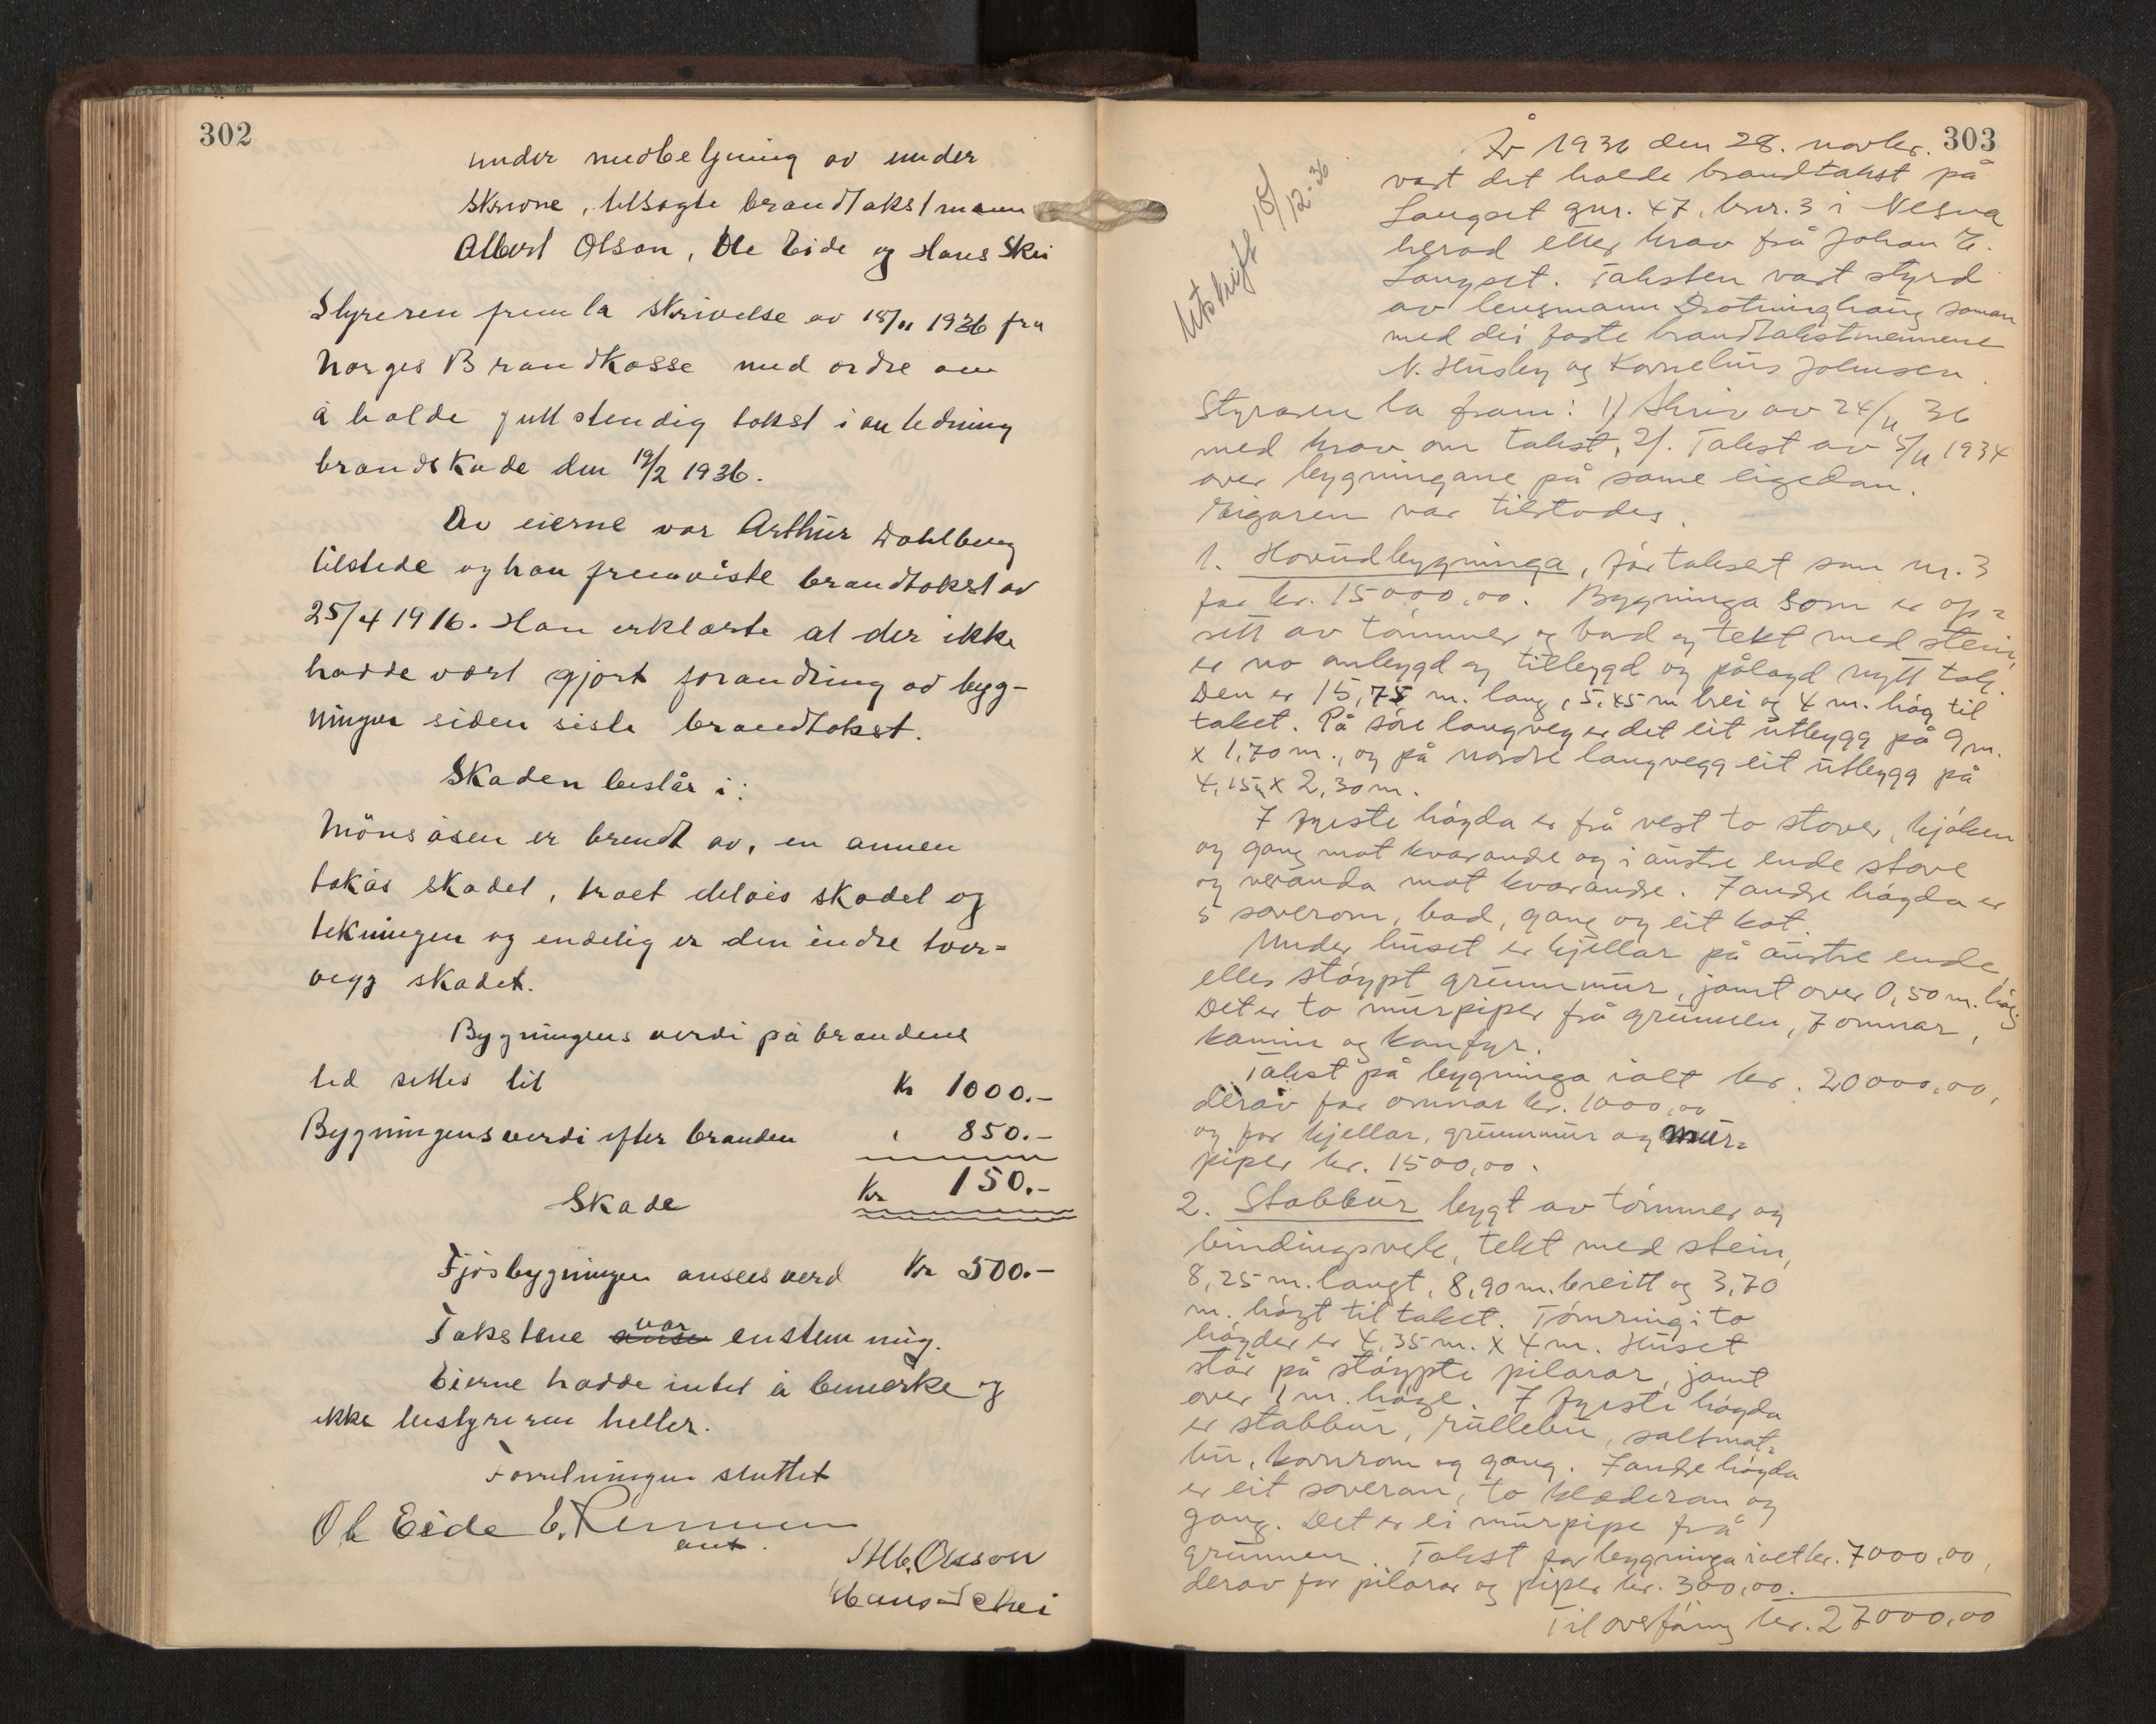 302
under medbetjening av under
skrevne, tilsagte brandtakstmenn
Albert Olson, Ole Eide og Hans Skei
Styreren fremla skrivelse av 18/11 1936 fra
Norges Brandkasse med ordre om
å holde fullstendig takst i anledning
brandskade den 19/2 1936.
Av eierne var Arthur Dahlberg
tilstede og han fremviste brandtakst av
25/4 1916. Han erklærte at der ikke
hadde vært gjort forandring av byg-
ningen siden siste brandtakst.
Skaden består i:
Mønsåsen er brendt av, en annen
takås skadet, troet delvis skadet og
tekningen og endelig er den indre tver=
vegg skadet.
Bygningens verdi på brandens
tid settes til Kr 1000.-
Bygningens verdi efter branden " 850.-
Skade Kr 150.-
Fjøsbygningen ansees verd Kr 500.-
Takstene var enstemmig.
Eierne hadde intet å bemerke og
ikke bestyreren heller.
Forretningen sluttet
Ole Eide E.
Alb. Olsson
Hans Schei
303
Utskrift 18/12-36
År 1936 den 28. novbr.
vart det halde brandtakst på
Langset gnr. 47, bnr. 3 i Nesna
herad etter krav frå Johan E.
Langset. Taksten vart styrd
av lensmann Drotninghaug saman
med dei faste brandtakstmennene
N. Husby og Kornelius Johnsen.
Styraren la fram: 1) Skriv av 24/11 36
med krav om takst, 2). Takst av 5/11 1934
over bygningane på same eigedom.
Eigaren var tilstades.
1. Hovudbygninga, før taksert som nr. 3
for kr. 15000,00. Bygninga som er op=
sett av tømmer og bord og tekt med stein,
er no ombygd og tilbygd og pålagd nytt tak.
Den er 15,75 m. lang, 5,45 m brei og 4 m. høg til
taket. På søre langvegg er det eit utbygg på 9 m.
x 1,70 m., og på nordre langvegg eit utbygg på
4,15 x 2,30 m.
I fyrste høgda er frå vest to stover, kjøken
og gang mot kvarandre og i austre ende stove
og veranda mot kvarandre. I andre høgda er
5 soverom, bad, gang og eit kot.
Under huset er kjellar på austre ende,
elles støypt grunnmur, jamt over 0,50 m. høg.
Det er to murpiper frå grunnen, 7 omnar,
kamin og komfyr.
Takst på bygninga ialt kr. 20000,00,
derav for omnar kr. 1000,00
og for kjellar, grunnmur og mur=
piper kr. 1500,00.
2. Stabbur bygt av tømmer og
bindingsverk, tekt med stein,
8,25 m. langt, 8,90 m. breitt og 3,70
m. høgt til taket. Tømring i to
høgder er 4,35 m. x 4 m. Huset
står på støypte pilarar, jamt
over 1 m. høge. I fyrste høgda
er stabbur, rullebu, saltmat=
bu, kornrom og gang. I andre høgda
er eit soverom, to klæderom og
gang. Det er ei murpipe frå
grunnen. Takst for bygninga ialt kr. 7000,00,
derav for pilarar og piper kr. 300,00.
Til overføring kr. 27000,00